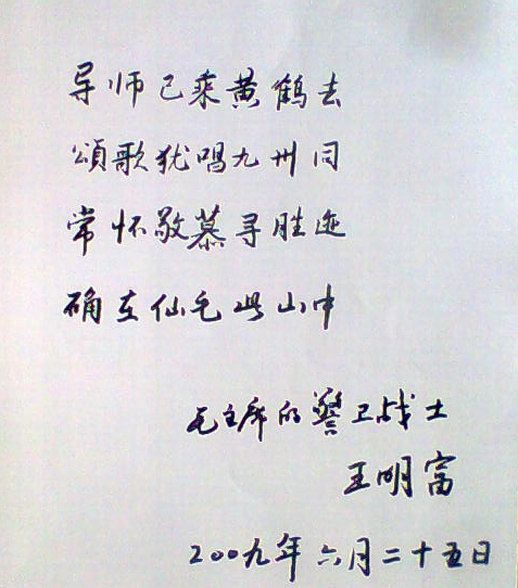 导师已乘黄鹤去
頌歌犹唱九州同
常怀敬慕寻胜迹
确在仙毛此山中
毛主席的警卫战士
王明富
2009年六月二十五日